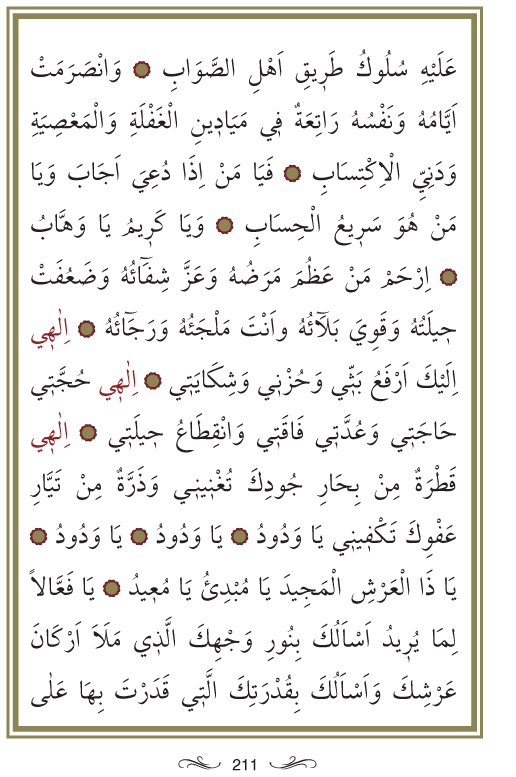 عَلَيْهِ سُلُوكُ طَرِيقِ اَهْلِ الصَّوَابِ ۞ وَانْصَرَمَتْ
اَيَّامُهُ وَنَفْسُهُ رَاتِعَةٌ فِي مَيَادِينِ الْغَفْلَةِ وَالْمَعْصِيَةِ
وَدَنِيِّ الْاِكْتِسَابِ ۞ فَيَا مَنْ اِذَا دُعِيَ اَجَابَ وَيَا
مَنْ هُوَ سَرِيعُ الْحِسَابِ ۞ وَيَا كَرِيمُ يَا وَهَّابُ
۞ اِرْحَمْ مَنْ عَظُمَ مَرَضُهُ وَعَزَّ شِفَٓائُهُ وَضَعُفَتْ
حِيلَتُهُ وَقَوِيَ بَلَٓائُهُ واَنْتَ مَلْجَئُهُ وَرَجَٓائُهُ ۞ اِلٰهِي
اِلَيْكَ اَرْفَعُ بَثِّي وَحُزْنِي وَشِكَايَتِي ۞ اِلٰهِي حُجَّتِي
حَاجَتِي وَعُدَّتِي فَاقَتِي وَانْقِطَاعُ حِيلَتِي ۞ اِلٰهِي
قَطْرَةٌ مِنْ بِحَارِ جُودِكَ تُغْنِينِي وَذَرَّةٌ مِنْ تَيَّارِ
عَفْوِكَ تَكْفِينِي يَا وَدُودُ ۞ يَا وَدُودُ ۞ يَا وَدُودُ ۞
يَا ذَا الْعَرْشِ الْمَجِيدَ يَا مُبْدِئُ يَا مُعِيدُ ۞ يَا فَعَّالاً
لِمَا يُرِيدُ اَسْاَلُكَ بِنُورِ وَجْهِكَ الَّذِي مَلَاَ اَرْكَانَ
عَرْشِكَ وَاَسْاَلُكَ بِقُدْرَتِكَ الَّتِي قَدَرْتَ بِهَا عَلٰى
211